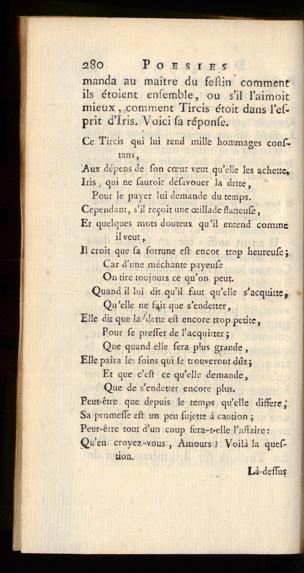 280 POESIES
manda au maître du festin comment
ils étoient ensemble, ou s'il l'aimoit
mieux, comment Tircis étoit dans l'es-
prit d'Iris. Voici sa réponse.
Ce Tircis qui lui rend mille hommages cons-
tans,
Aux dépens de son cœur veut qu'elle les achette,
Iris, qui ne sauroit désavouer la dette,
Pour le payer lui demande du temps.
Cependant, s'il reçoit une œillade flatteuse,
Et quelques mots douteux qu'il entend comme
il veut,
Il croit que sa fortune est encor trop heureuse;
Car d'une méchante payeuse
On tire toujours ce qu'on peut.
Quand il lui dit qu'il faut qu'elle s'acquitte,
Qu'elle ne fait que s'endetter,
Elle dit que la dette est encore trop petite,
Pour se presser de l'acquitter;
Que quand elle sera plus grande,
Elle paira les soins qui se trouveront dûs;
Et que c'est ce qu'elle demande,
Que de s'endetter encore plus.
Peut-être que depuis le temps qu'elle differe,
Sa promesse est un peu sujette à caution;
Peut-être tout d'un coup sera-t-elle l'affaire:
Qu'en croyez-vous, Amours? Voilà la ques-
tion.
Là-dessus